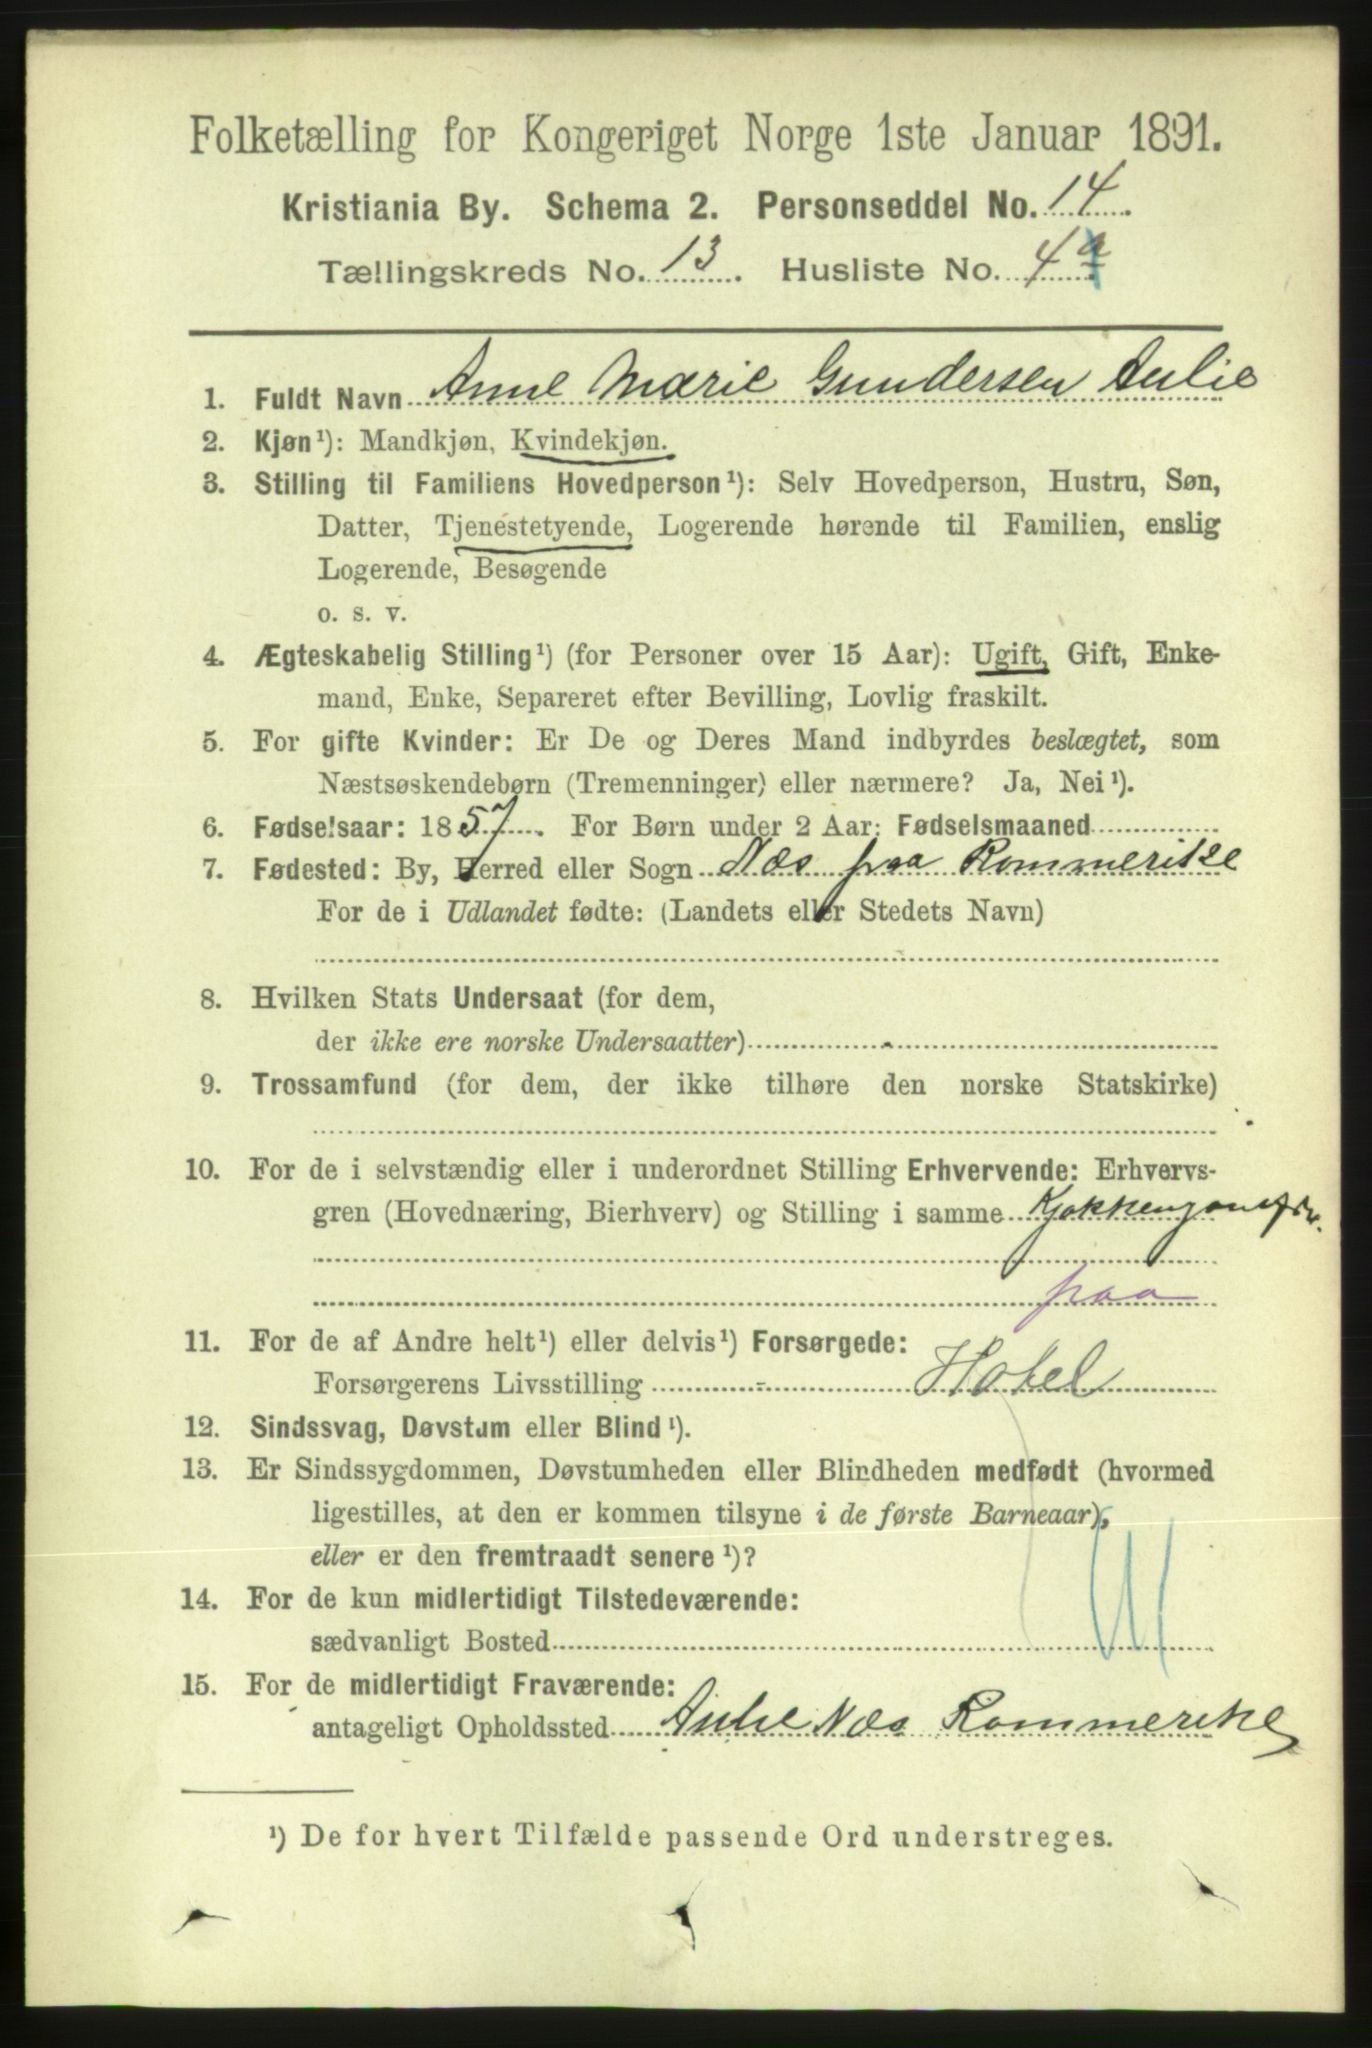 Folketælling for Kongeriget Norge 1ste Januar 1891.
Kristiania By. Schema 2. Personseddel No. 14.
Tællingskreds No. 13. Husliste No. 4a
1. Fuldt Navn Anne Marie Gundersen Aulie
2. Kjøn¹): Mandkjøn, Kvindekjøn.
3. Stilling til Familiens Hovedperson¹): Selv Hovedperson, Hustru, Søn,
Datter, Tjenestetyende, Logerende hørende til Familien, enslig
Logerende, Besøgende
o. s. v.
4. Ægteskabelig Stilling¹) (for Personer over 15 Aar): Ugift, Gift, Enke-
mand, Enke, Separeret efter Bevilling, Lovlig fraskilt.
5. For gifte Kvinder: Er De og Deres Mand indbyrdes beslægtet, som
Næstsøskendebørn (Tremenninger) eller nærmere? Ja, Nei¹).
6. Fødselsaar: 1857. For Børn under 2 Aar: Fødselsmaaned
7. Fødested: By, Herred eller Sogn Næs paa Rommerike
For de i Udlandet fødte: (Landets eller Stedets Navn)
8. Hvilken Stats Undersaat (for dem,
der ikke ere norske Undersaatter)
9. Trossamfund (for dem, der ikke tilhøre den norske Statskirke)
10. For de i selvstændig eller i underordnet Stilling Erhvervende: Erhvervs-
gren (Hovednæring, Bierhverv) og Stilling i samme Kjøkkenjomfru.
paa
11. For de af Andre helt¹) eller delvis¹) Forsørgede:
Forsørgerens Livsstilling Hotel
12. Sindssvag, Døvstum eller Blind¹).
13. Er Sindssygdommen, Døvstumheden eller Blindheden medfødt (hvormed
ligestilles, at den er kommen tilsyne i de første Barneaar),
eller er den fremtraadt senere¹)?
14. For de kun midlertidigt Tilstedeværende:
sædvanligt Bosted
15. For de midlertidigt Fraværende:
antageligt Opholdssted Aulie Næs Rommerike
¹) De for hvert Tilfælde passende Ord understreges.